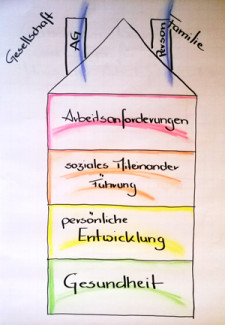 Gesellschaft
AG
Person
Familie
Arbeitsanforderungen
soziales Miteinander
Führung
persönliche
Entwicklung
Gesundheit